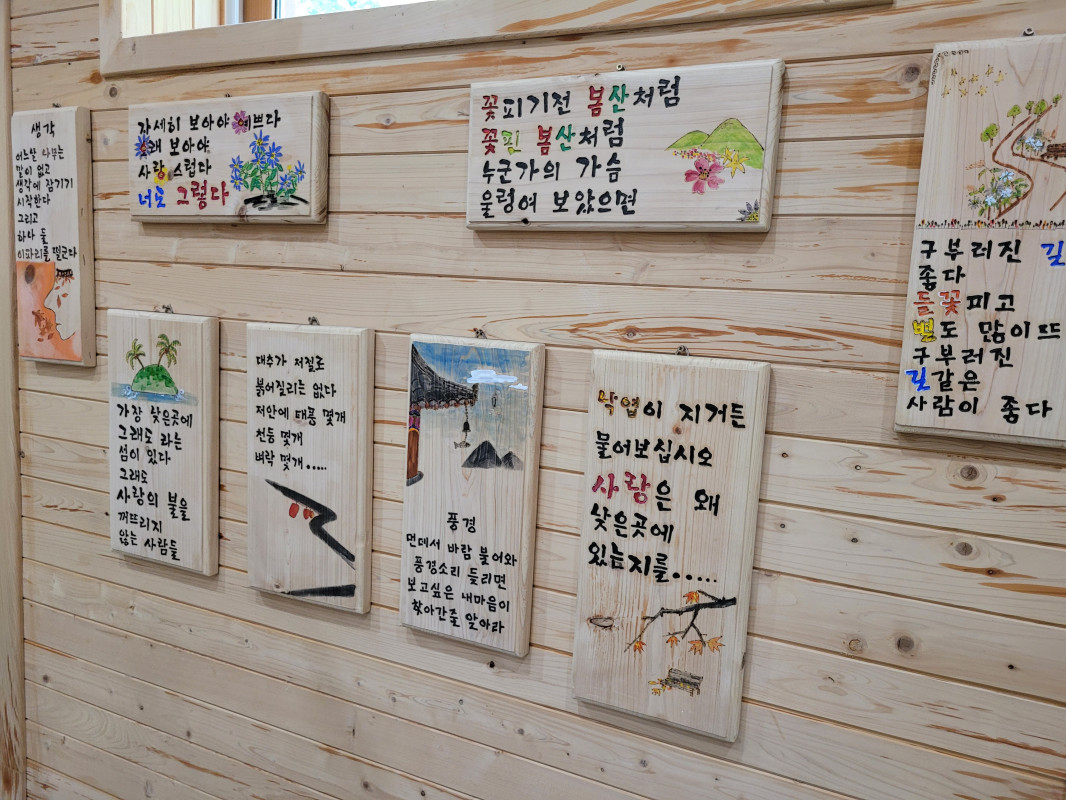 생각
어느날 나무는
말이 없고
생각에 잠기기
시작한다
그리고
하나 둘
이파리를 떨군다
자세히 보아야 예쁘다
오래 보아야
사랑 스럽다
너도 그렇다
꽃피기전 봄산처럼
꽃핀 봄산처럼
누군가의 가슴
울렁여 보았으면
구부러진 길
좋다
들꽃피고
별도 많이뜨
구부러진
길같은
사람이 좋다
가장 낮은곳에
그래도 라는
섬이 있다
그래도
사랑의 불을
꺼뜨리지
않는 사람들
대추가 저절로
붉어질리는 없다
저안에 태풍 몇개
천둥 몇개
벼락 몇개.....
풍경
먼데서 바람 불어와
풍경소리 들리면
보고싶은 내마음이
찾아간줄 알아라
낙엽이 지거든
물어보십시오
사랑은 왜
낮은곳에
있는지를.....